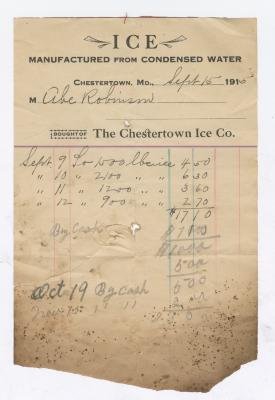 ICE
MANUFACTURED FROM CONDENSED WATER
CHESTERTOWN, MD., Sept 15 191
M Abe Robinson
BOUGHT OF The Chestertown Ice Co.
Sept 9 To lb ice 4 50
" 10 " 2100 " " 6 30
" 11 " 1200 " " 3 60
" 12 " 900 " " 2 70
$17 10
By Cash
5 00
Oct 19 By cash 5 00
Nov " "